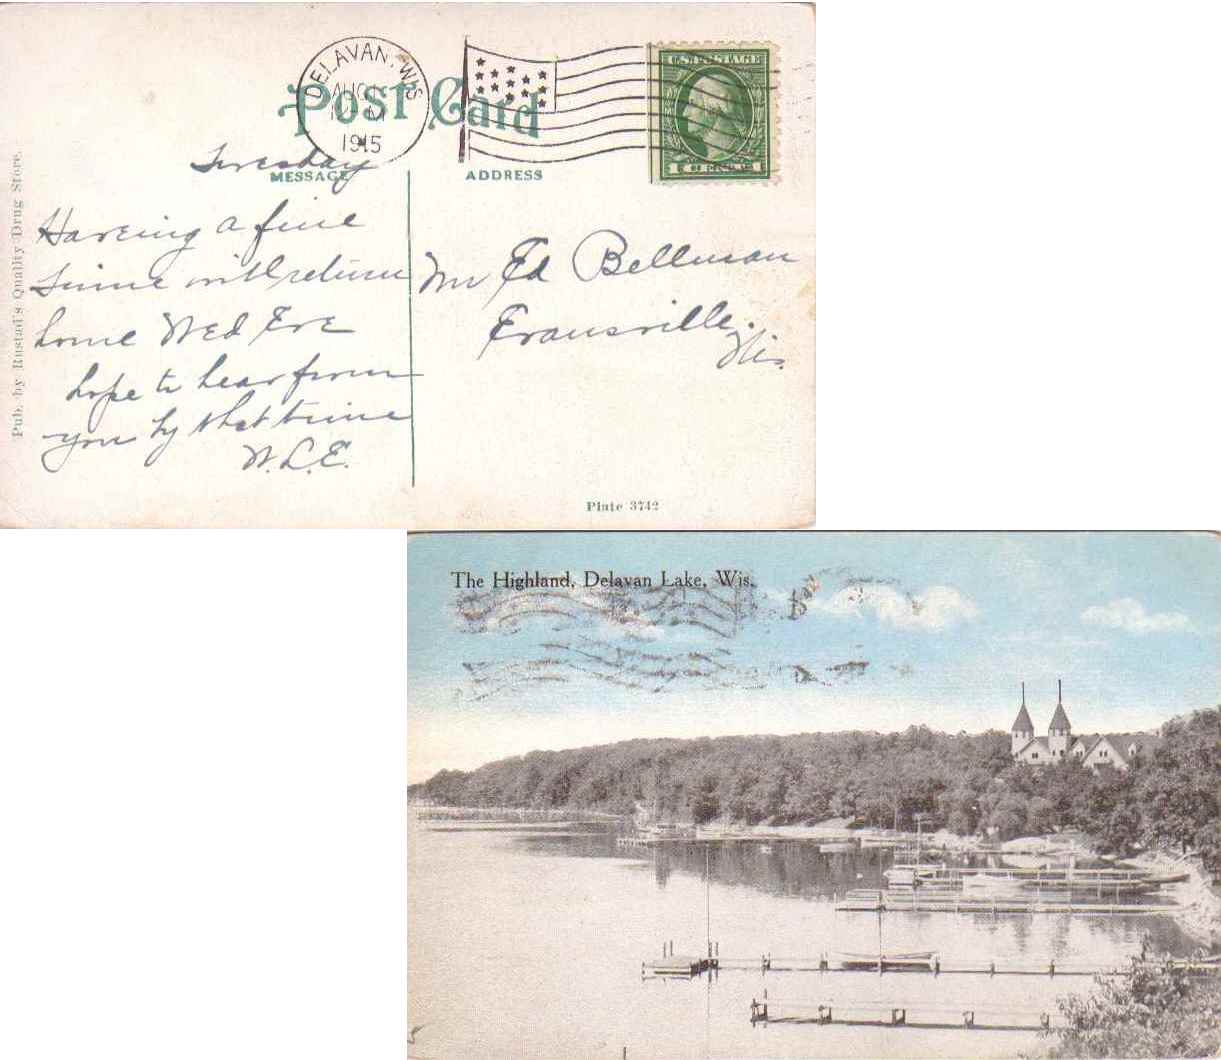 DELAVAN, WIS
AUG
M
1915
Post Card
U.S. POSTAGE
1
Tuesday
MESSAGE
ADDRESS
Having a fine
time will return
home Wed Eve
hope to hear from
you by that time
W. L. E.
Mr Ed Bellman
Evansville
Wis.
Pub. by Rustad's Quality Drug Store.
Plate 3742
The Highland, Delavan Lake, Wis.